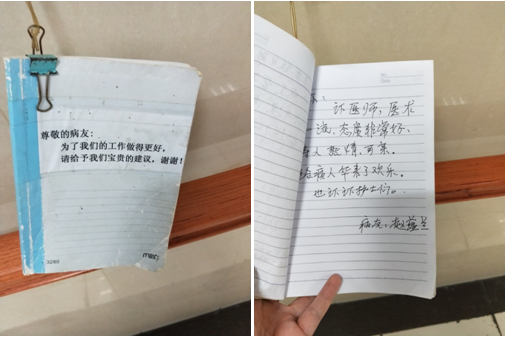 尊敬的病友：
为了我们的工作做得更好，
请给予我们宝贵的建议，谢谢！
3260
医师，医术
流，态度非常好，
人热情、可亲。
病人带来了欢乐。
也 护士们。
病友：赵